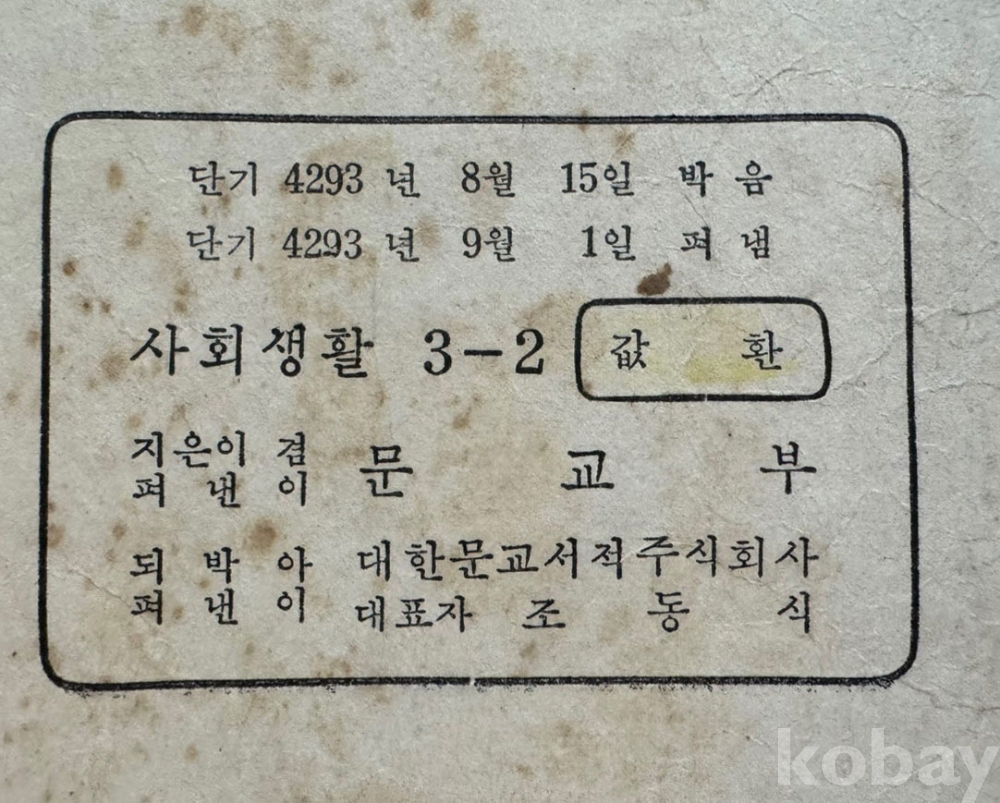 단기 4293 년 8월 15일 박 음
단기 4293 년 9월 1일 펴 냄
사회생활 3-2 값 환
지은이 겸
펴 낸 이 문 교 부
되 박 아 대한문교서적주식회사
펴 낸 이 대표자 조 동 식
kobay